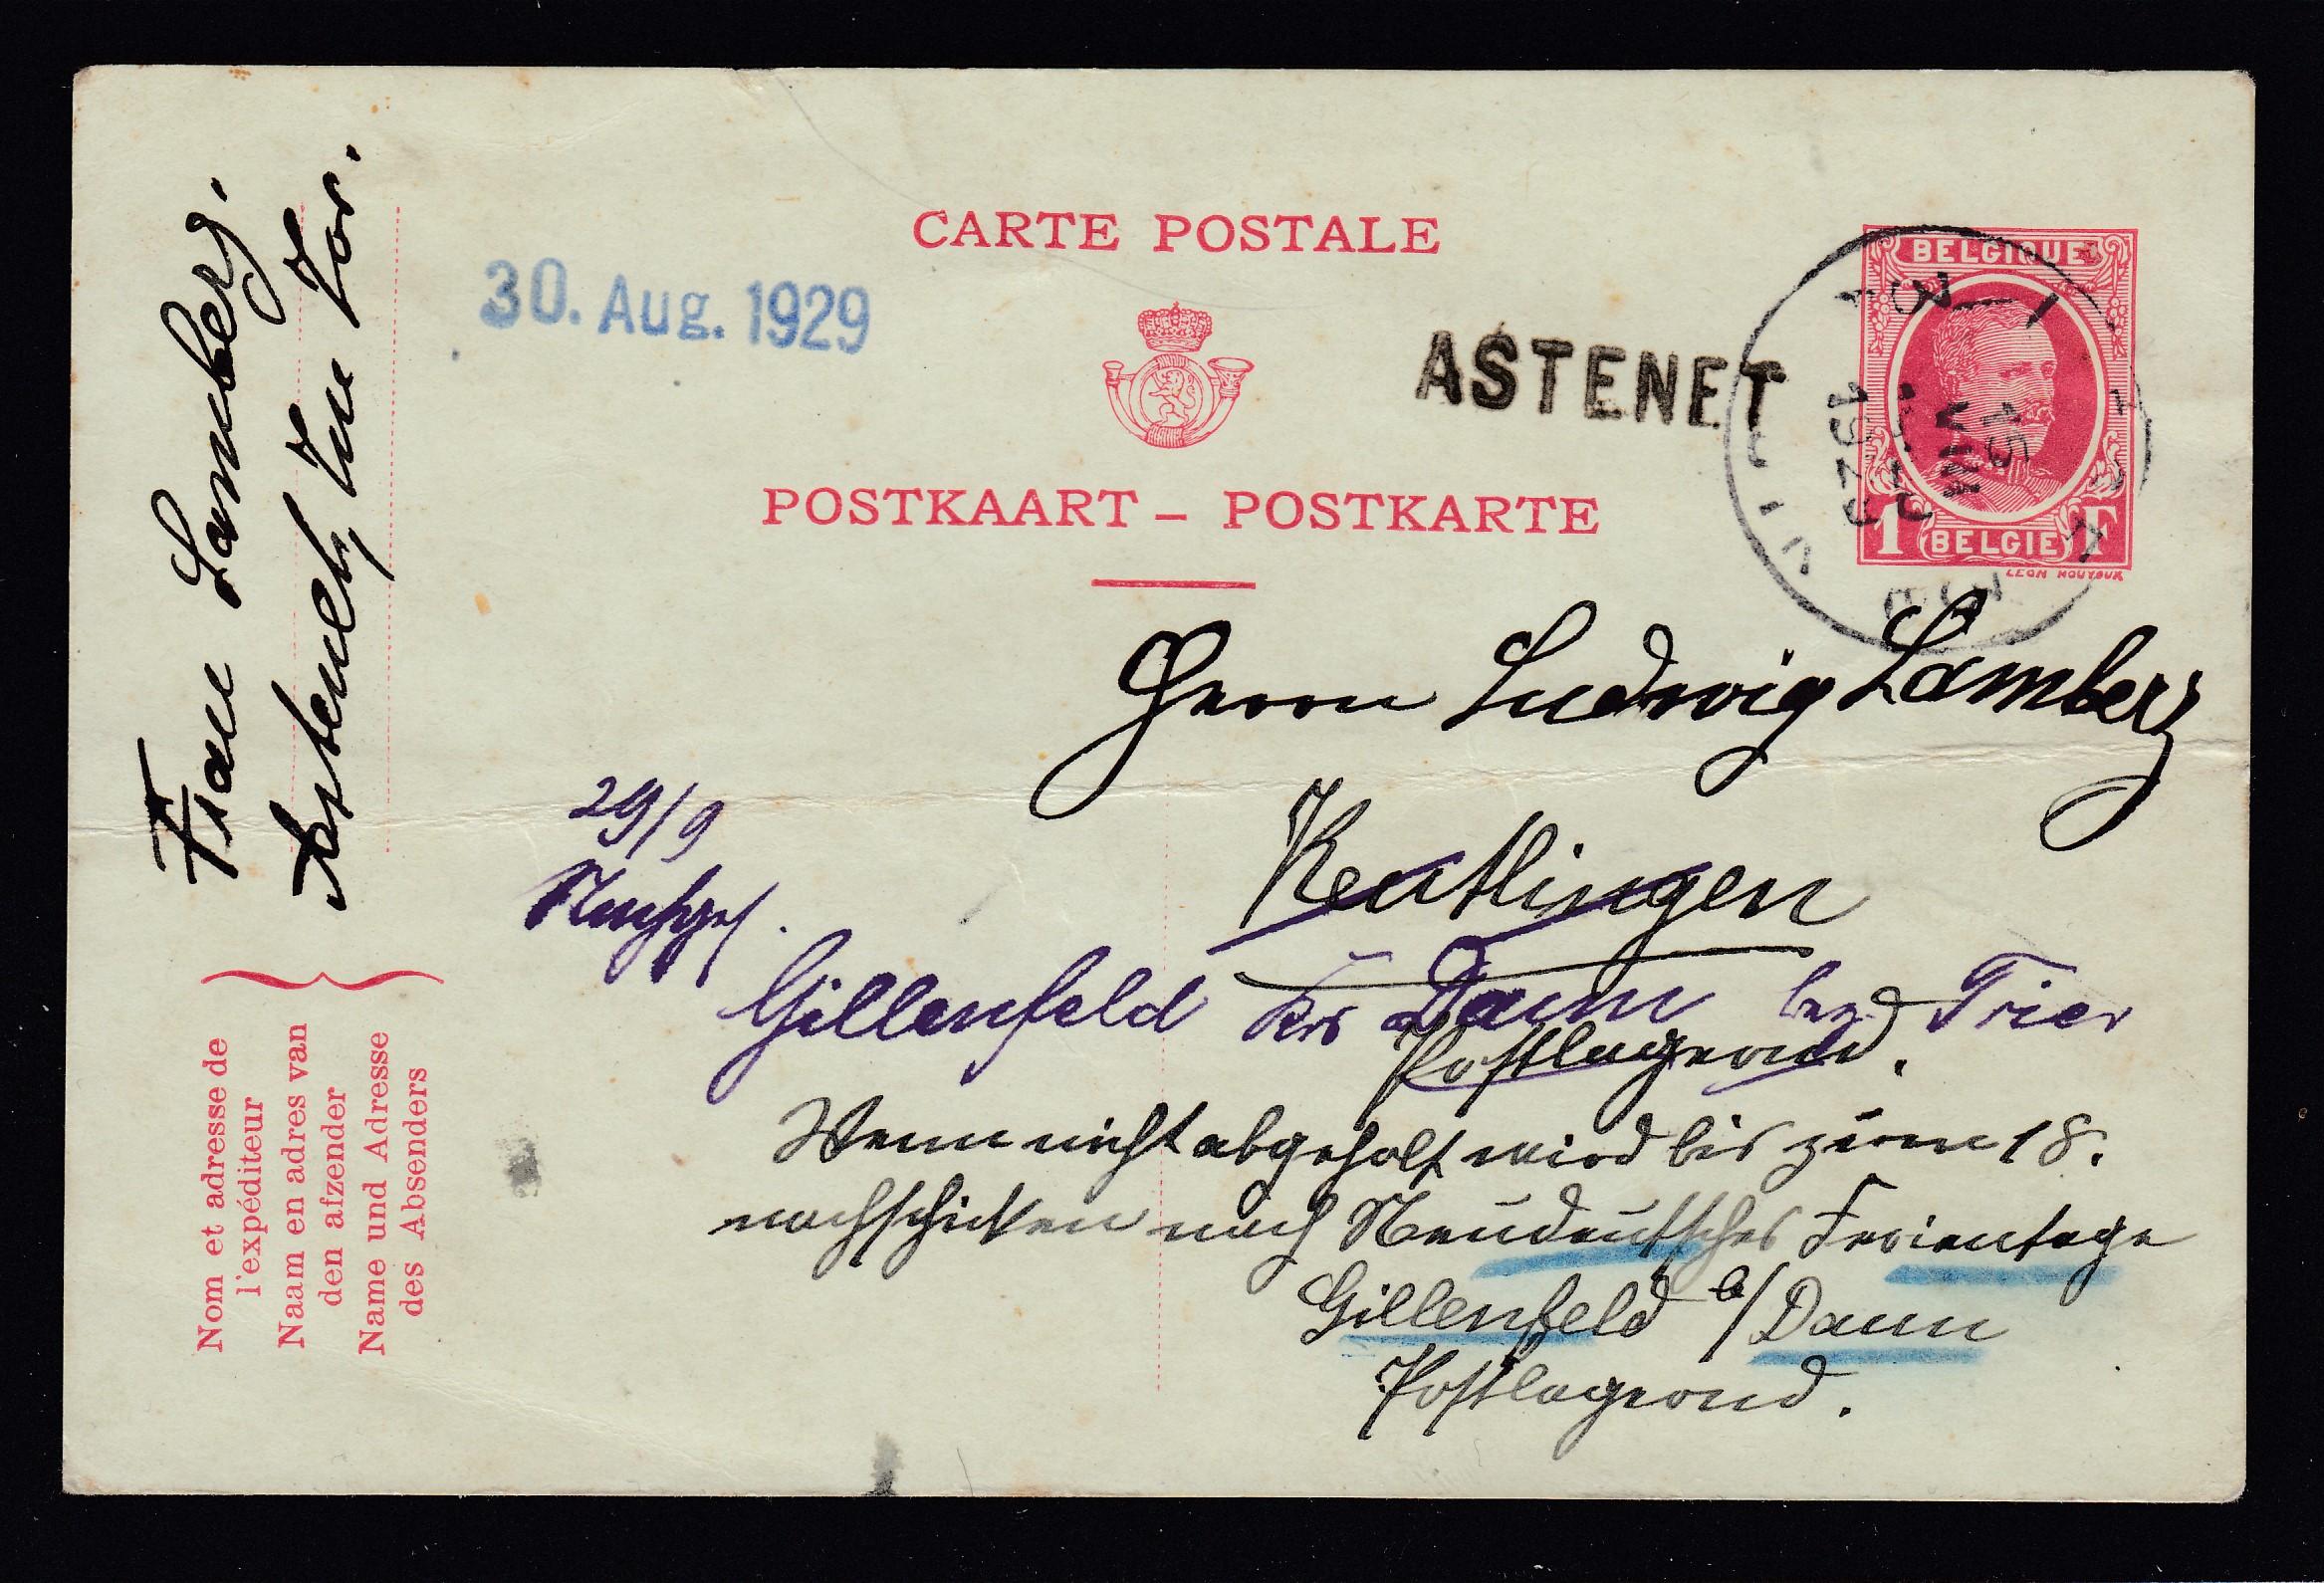 CARTE POSTALE
30. Aug. 1929
ASTENET
POSTKAART – POSTKARTE
BELGIQUE
1 F
BELGIE
15
VIII
1929
Herrn Ludwig Lamberz
Reutlingen
29/9
Gillenfeld Krs Daun bez. Trier
Postlagernd.
Wenn nicht abgeholt wird bis zum 18.
nachschicken nach Neudeutsches Ferientage
Gillenfeld b/Daun
Postlagernd.
Frau Lamberz.
Astenet,
Nom et adresse de
l'expéditeur
Naam en adres van
den afzender
Name und Adresse
des Absenders